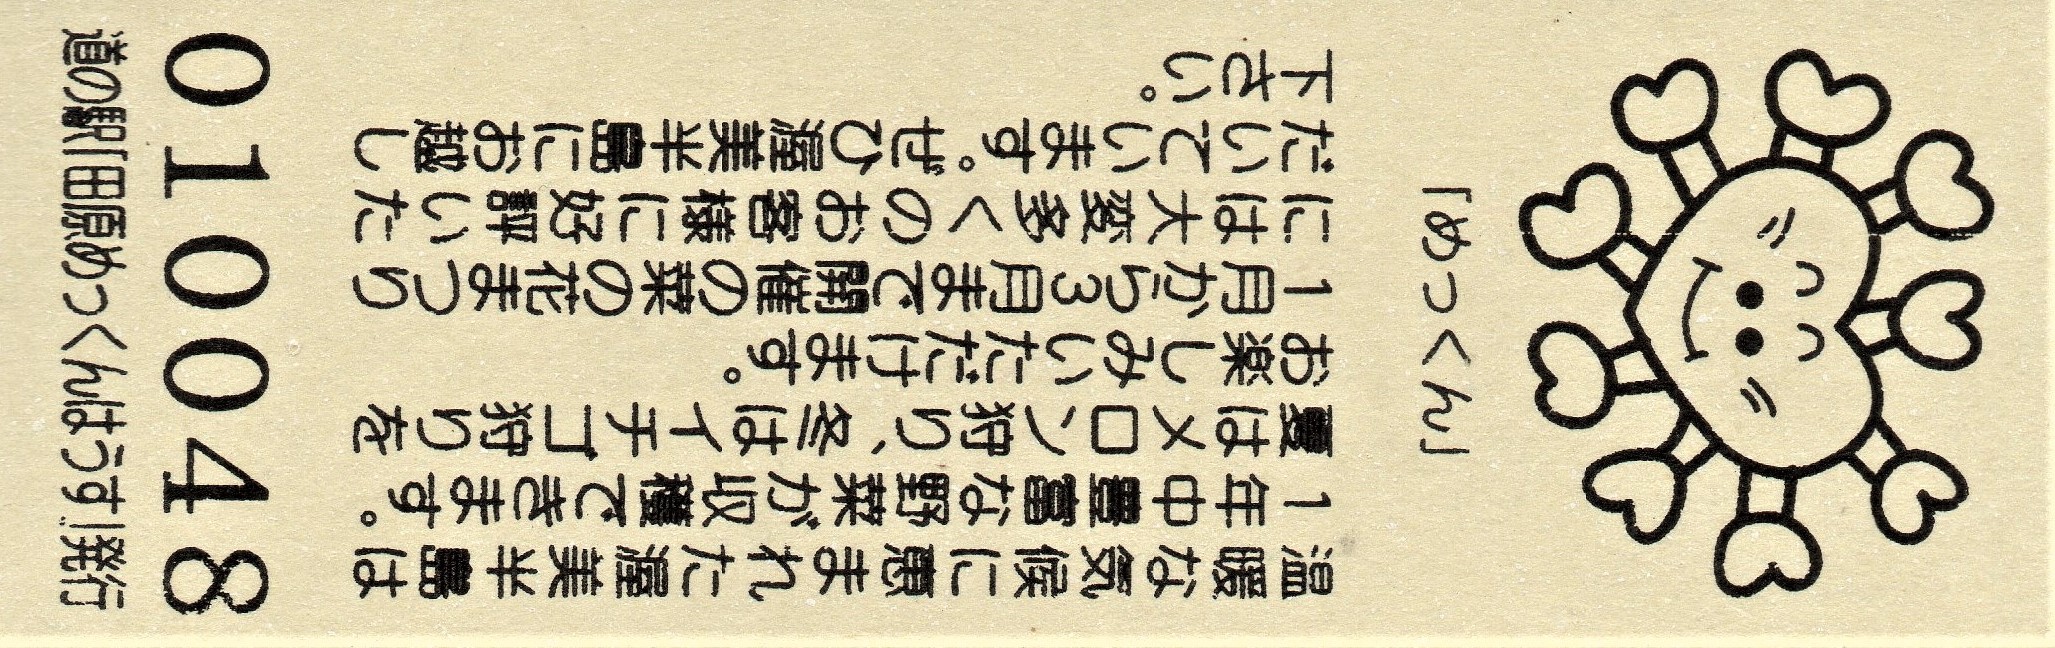 「めっくん」
温暖な気候に恵まれた渥美半島は
1年中豊富な野菜が収穫できます。
夏はメロン狩り、冬はイチゴ狩りを
お楽しみいただけます。
1月から3月まで開催の菜の花まつり
には大変多くのお客様に好評いた
だいています。ぜひ渥美半島にお越し
下さい。
010048
道の駅「田原めっくんはうす」発行